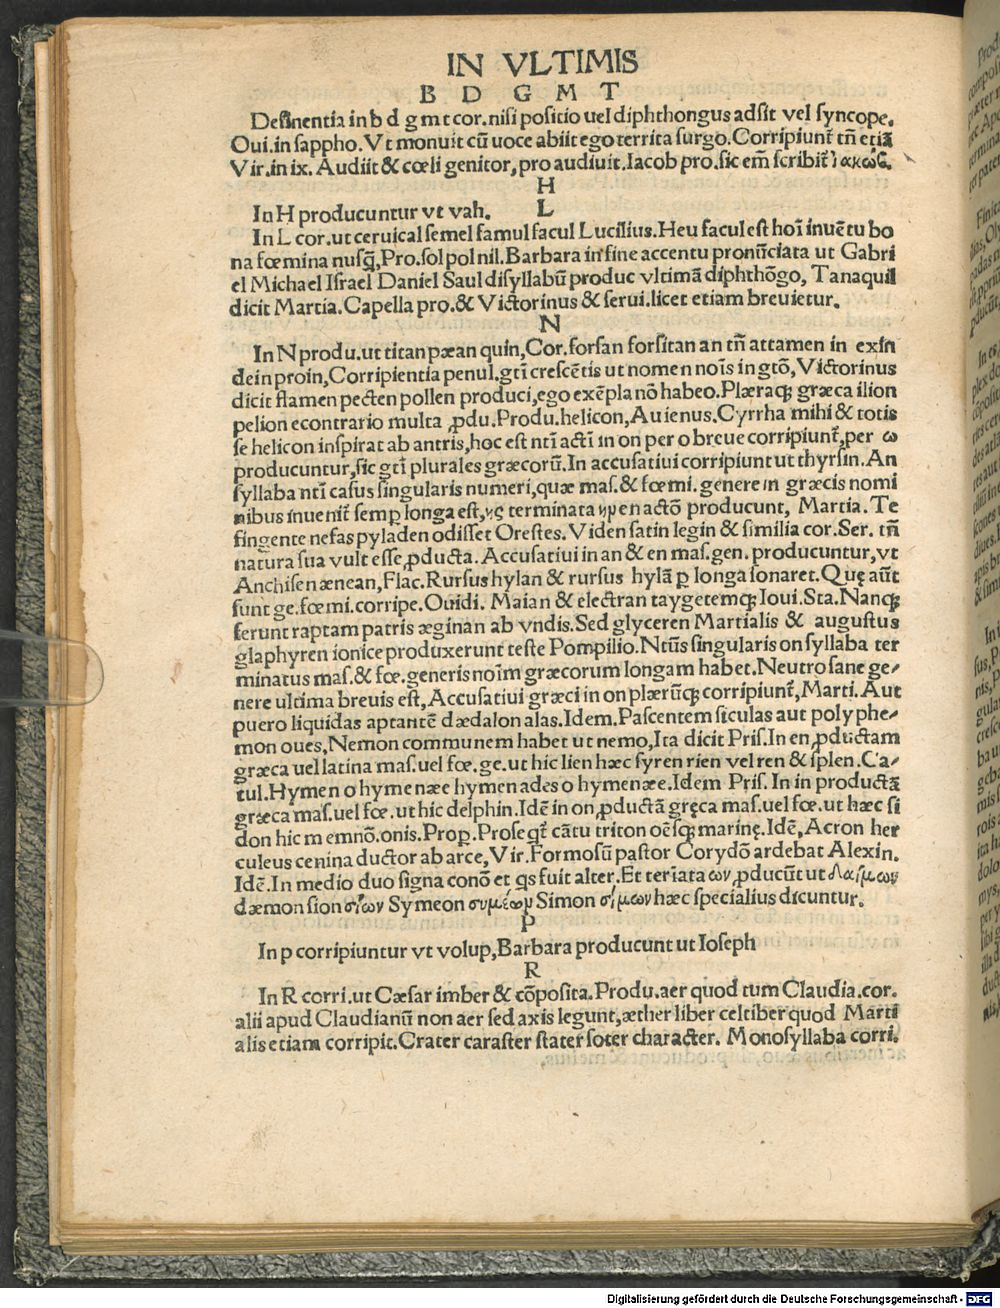 IN VLTIMIS
B D G M T
Desinentia in b d g m t cor. nisi positio uel diphthongus adsit vel syncope.
Oui. in sappho. Vt monuit cū uoce abiit ego territa surgo. Corripiunt̄ tn̄ etiā
Vir. in ix. Audiit & cœli genitor, pro audiuit. Iacob pro. sic em̄ scribit̄ ἰακὼϐ.
H
In H producuntur vt vah.
L
In L cor. ut ceruical semel famul facul Lucilius. Heu facul est hoī inuētu bo
na fœmina nusq̄, Pro. sol pol nil. Barbara in fine accentu pronūciata ut Gabri
el Michael Israel Daniel Saul disyllabū produc vltimā diphthōgo, Tanaquil
dicit Martia. Capella pro. & Victorinus & serui. licet etiam breuietur.
N
In N produ. ut titan pæan quin, Cor. forsan forsitan an tn̄ attamen in exin
dein proin, Corripientia penul. gtī crescētis ut nomen noīs in gtō, Victorinus
dicit flamen pecten pollen produci, ego exēpla nō habeo. Plæraqꝫ græca ilion
pelion econtrario multa ꝓdu. Produ. helicon, Auienus. Cyrrha mihi & totis
se helicon inspirat ab antris, hoc est ntī actī in on per o breue corripiunt̄, per ω
producuntur, sic gtī plurales græcorū. In accusatiui corripiunt ut thyrsin. An
syllaba ntī casus singularis numeri, quæ mas. & fœmi. genere in græcis nomi
nibus inuenit̄ semꝑ longa est, ης terminata ην en actō producunt, Martia. Te
fingente nefas pyladen odisset Orestes. Viden satin legin & similia cor. Ser. tn̄
natūra sua vult esse ꝓducta. Accusatiui in an & en mas. gen. producuntur, vt
Anchisen ænean, Flac. Rursus hylan & rursus hylā ꝑ longa sonaret. Quę aūt
sunt ge. fœmi. corripe. Ouidi. Maian & electran taygetemqꝫ Ioui. Sta. Nanqꝫ
ferunt raptam patris æginan ab vndis. Sed glyceren Martialis & augustus
glaphyren ionice produxerunt teste Pompilio. Ntūs singularis on syllaba ter
minatus mas. & fœ. generis noīm græcorum longam habet. Neutro sane ge⸗
nere ultima breuis est, Accusatiui græci in on plærūqꝫ corripiunt̄, Marti. Aut
puero liquidas aptantē dædalon alas. Idem. Pascentem siculas aut polyphe⸗
mon oues, Nemon communem habet ut nemo, Ita dicit Pris. In en ꝓductam
græca uel latina mas. uel fœ. ge. ut hic lien hæc syren rien vel ren & splen. Ca⸗
tul. Hymen o hymenæe hymen ades o hymenæe. Idem Pris. In in productā
græca mas. uel fœ. ut hic delphin. Idē in on ꝓductā gręca mas. uel fœ. ut hæc si
don hic memnō. onis. Prop. Prosegt̄ cātu triton oēsqꝫ marinę. Idē, Acron her
culeus cenina ductor ab arce, Vir. Formosū pastor Corydō ardebat Alexin.
Idē. In medio duo signa conō et qs fuit alter. Et teriata ων ꝓducūt ut δαίμων
dæmon sion σίων Symeon συμέων Simon σίμων hæc specialius dicuntur.
P
In p corripiuntur vt volup, Barbara producunt ut Ioseph
R
In R corri. ut Cæsar imber & cōposita. Produ. aer quod tum Claudia. cor.
alii apud Claudianū non aer sed axis legunt, æther liber celtiber quod Marti
alis etiam corripit. Crater caraster stater soter character. Monosyllaba corri.
Digitalisierung gefördert durch die Deutsche Forschungsgemeinschaft - DFG